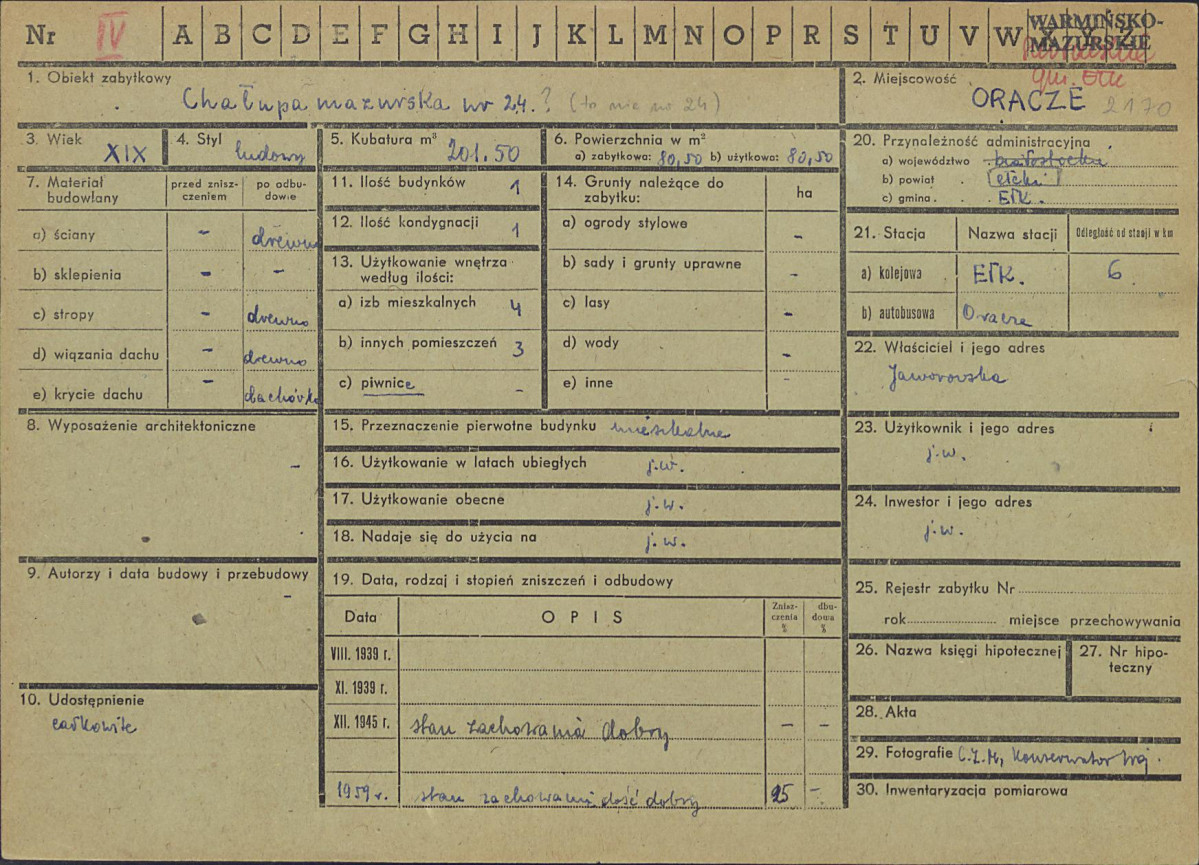 Nr IV A B C D E F G H I J K L M N O P R S T U V W X Y Z
WARMIŃSKO-
MAZURSKIE
gm. Ełk
1. Obiekt zabytkowy
Chałupa mazurska nr 24.? (to nie nr 24)
2. Miejscowość
ORACZE 2170
3. Wiek
XIX
4. Styl
ludowy
5. Kubatura m³
201.50
6. Powierzchnia w m²
a) zabytkowa: 80,50 b) użytkowa: 80,50
7. Materiał budowlany
przed zniszczeniem
po odbudowie
a) ściany - drewno
b) sklepienia - -
c) stropy - drewno
d) wiązania dachu - drewno
e) krycie dachu - dachówka
8. Wyposażenie architektoniczne
-
9. Autorzy i data budowy i przebudowy
-
10. Udostępnienie
całkowite
11. Ilość budynków 1
12. Ilość kondygnacji 1
13. Użytkowanie wnętrza
według ilości:
a) izb mieszkalnych 4
b) innych pomieszczeń 3
c) piwnice -
14. Grunty należące do
zabytku:
ha
a) ogrody stylowe -
b) sady i grunty uprawne -
c) lasy -
d) wody -
e) inne -
15. Przeznaczenie pierwotne budynku mieszkalne
16. Użytkowanie w latach ubiegłych j.w.
17. Użytkowanie obecne j.w.
18. Nadaje się do użycia na j.w.
19. Data, rodzaj i stopień zniszczeń i odbudowy
Data
OPIS
Zniszczenia %
dbudowa %
VIII. 1939 r.
XI. 1939 r.
XII. 1945 r. stan zachowania dobry - -
1959 r. stan zachowania dość dobry 25 -
20. Przynależność administracyjna
a) województwo białostockie
b) powiat ełcki
c) gmina Ełk.
21. Stacja
Nazwa stacji
Odległość od stacji w km
a) kolejowa Ełk. 6
b) autobusowa Oracze
22. Właściciel i jego adres
Jaworowska
23. Użytkownik i jego adres
j.w.
24. Inwestor i jego adres
j.w.
25. Rejestr zabytku Nr
rok miejsce przechowywania
26. Nazwa księgi hipotecznej
27. Nr hipoteczny
28. Akta
29. Fotografie C.Z.M, Konserwator woj.
30. Inwentaryzacja pomiarowa